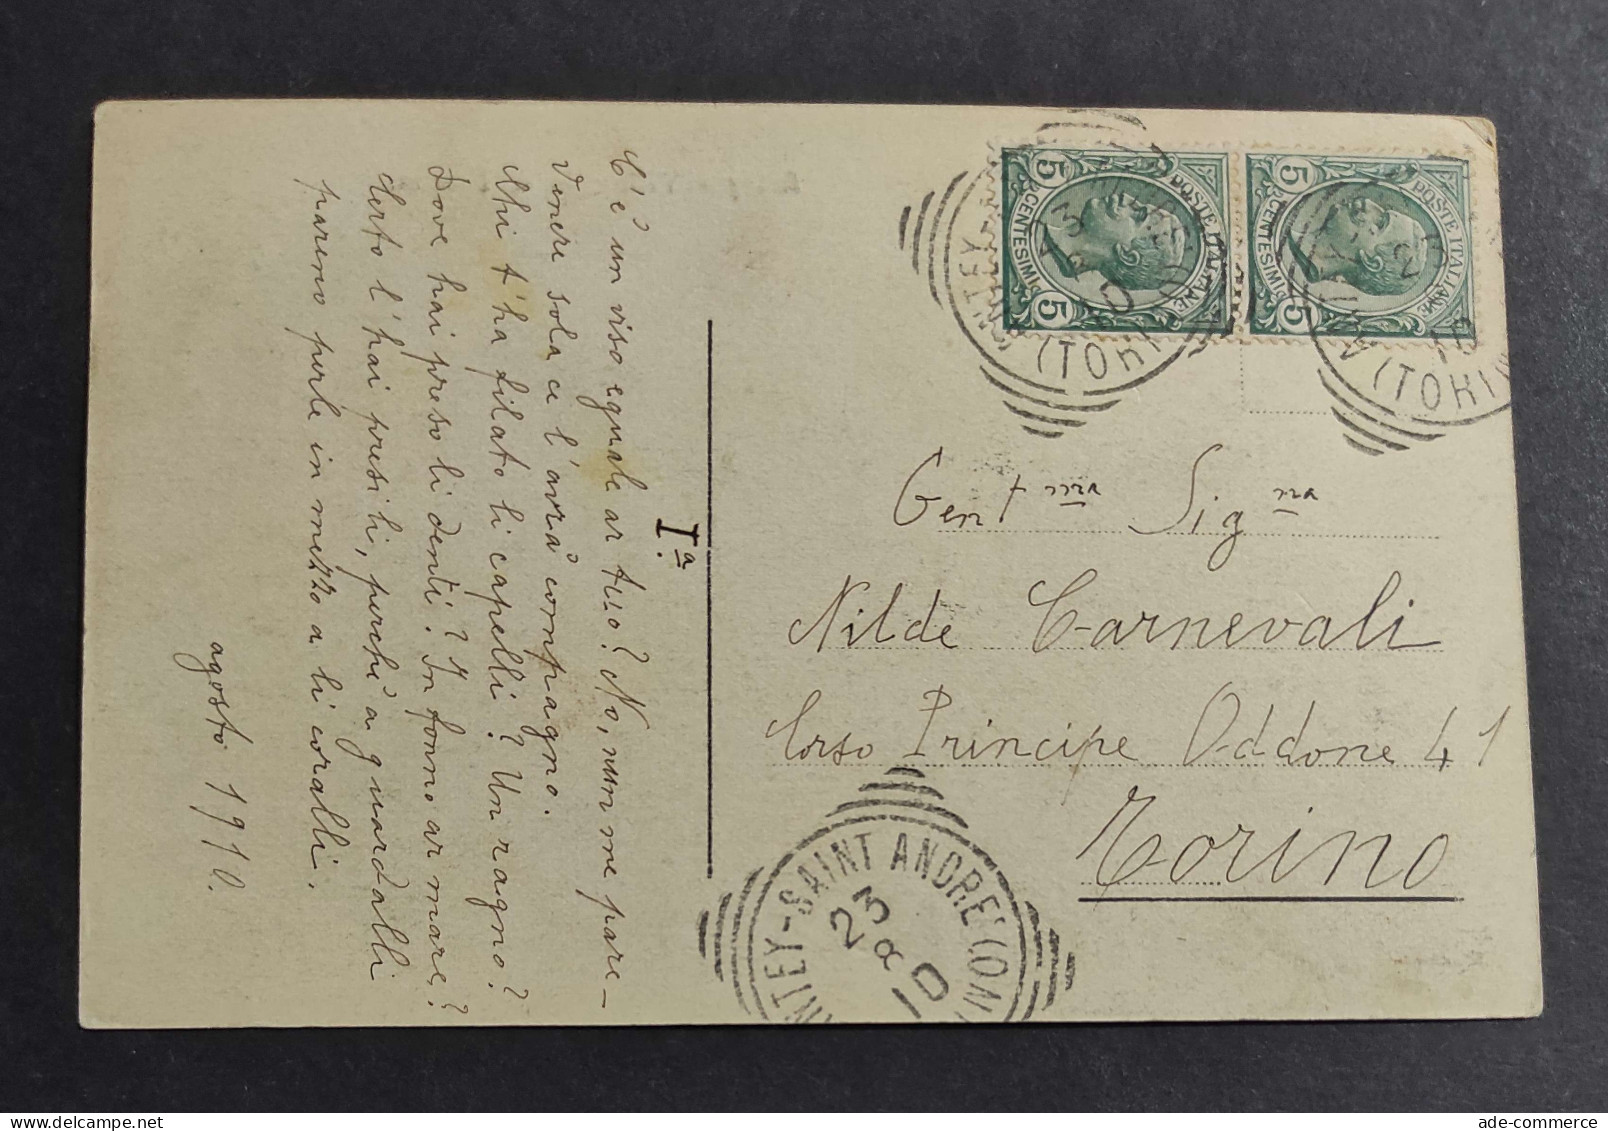 C'è un viso eguale ar tuo? No, nun me pare-
Venere sola ce l'avrà compagno.
Chi t'ha filato li capelli? Un ragno?
Dove hai preso li denti? In fonno ar mare?
Certo l'hai presi lì, perchè a guardalli
pareno perle in mezzo a li coralli.
agosto 1910.
Iª.
POSTE ITALIANE
CENTESIMI
5
5
POSTE ITALIANE
CENTESIMI
5
5
ANTEY
(TORI
(TORI
Gentma Signa
Nilde Carnevali
Corso Principe Oddone 41
Torino
NTEY-SAINT ANDRE' (
23
8
10
ade-commerce